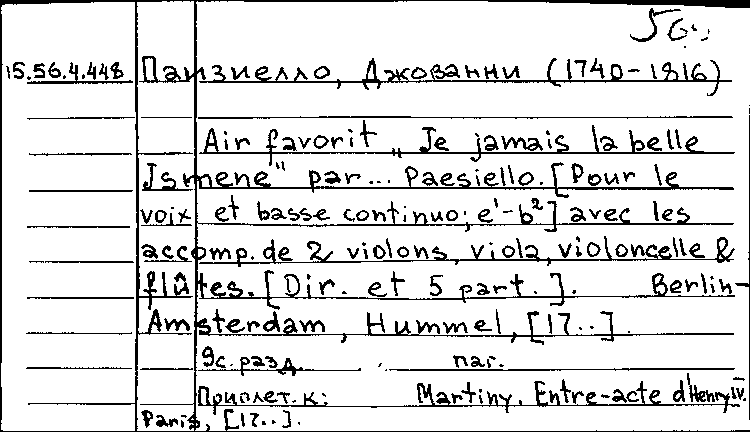 15.56.4.448 Паизиелло, Джованни (1740-1816)
Air favorit „Je jamais la belle
Jsmene" par... Paesiello. [Pour le
voix et basse continuo; e¹-b²] avec les
accomp. de 2 violons, viola, violoncelle &
flûtes. [Dir. et 5 part.]. Berlin-
Amsterdam, Hummel, [17..].
9с. разд. паг.
Приплет. к: Martiny. Entre-acte d'Henry IV.
Paris, [17..].